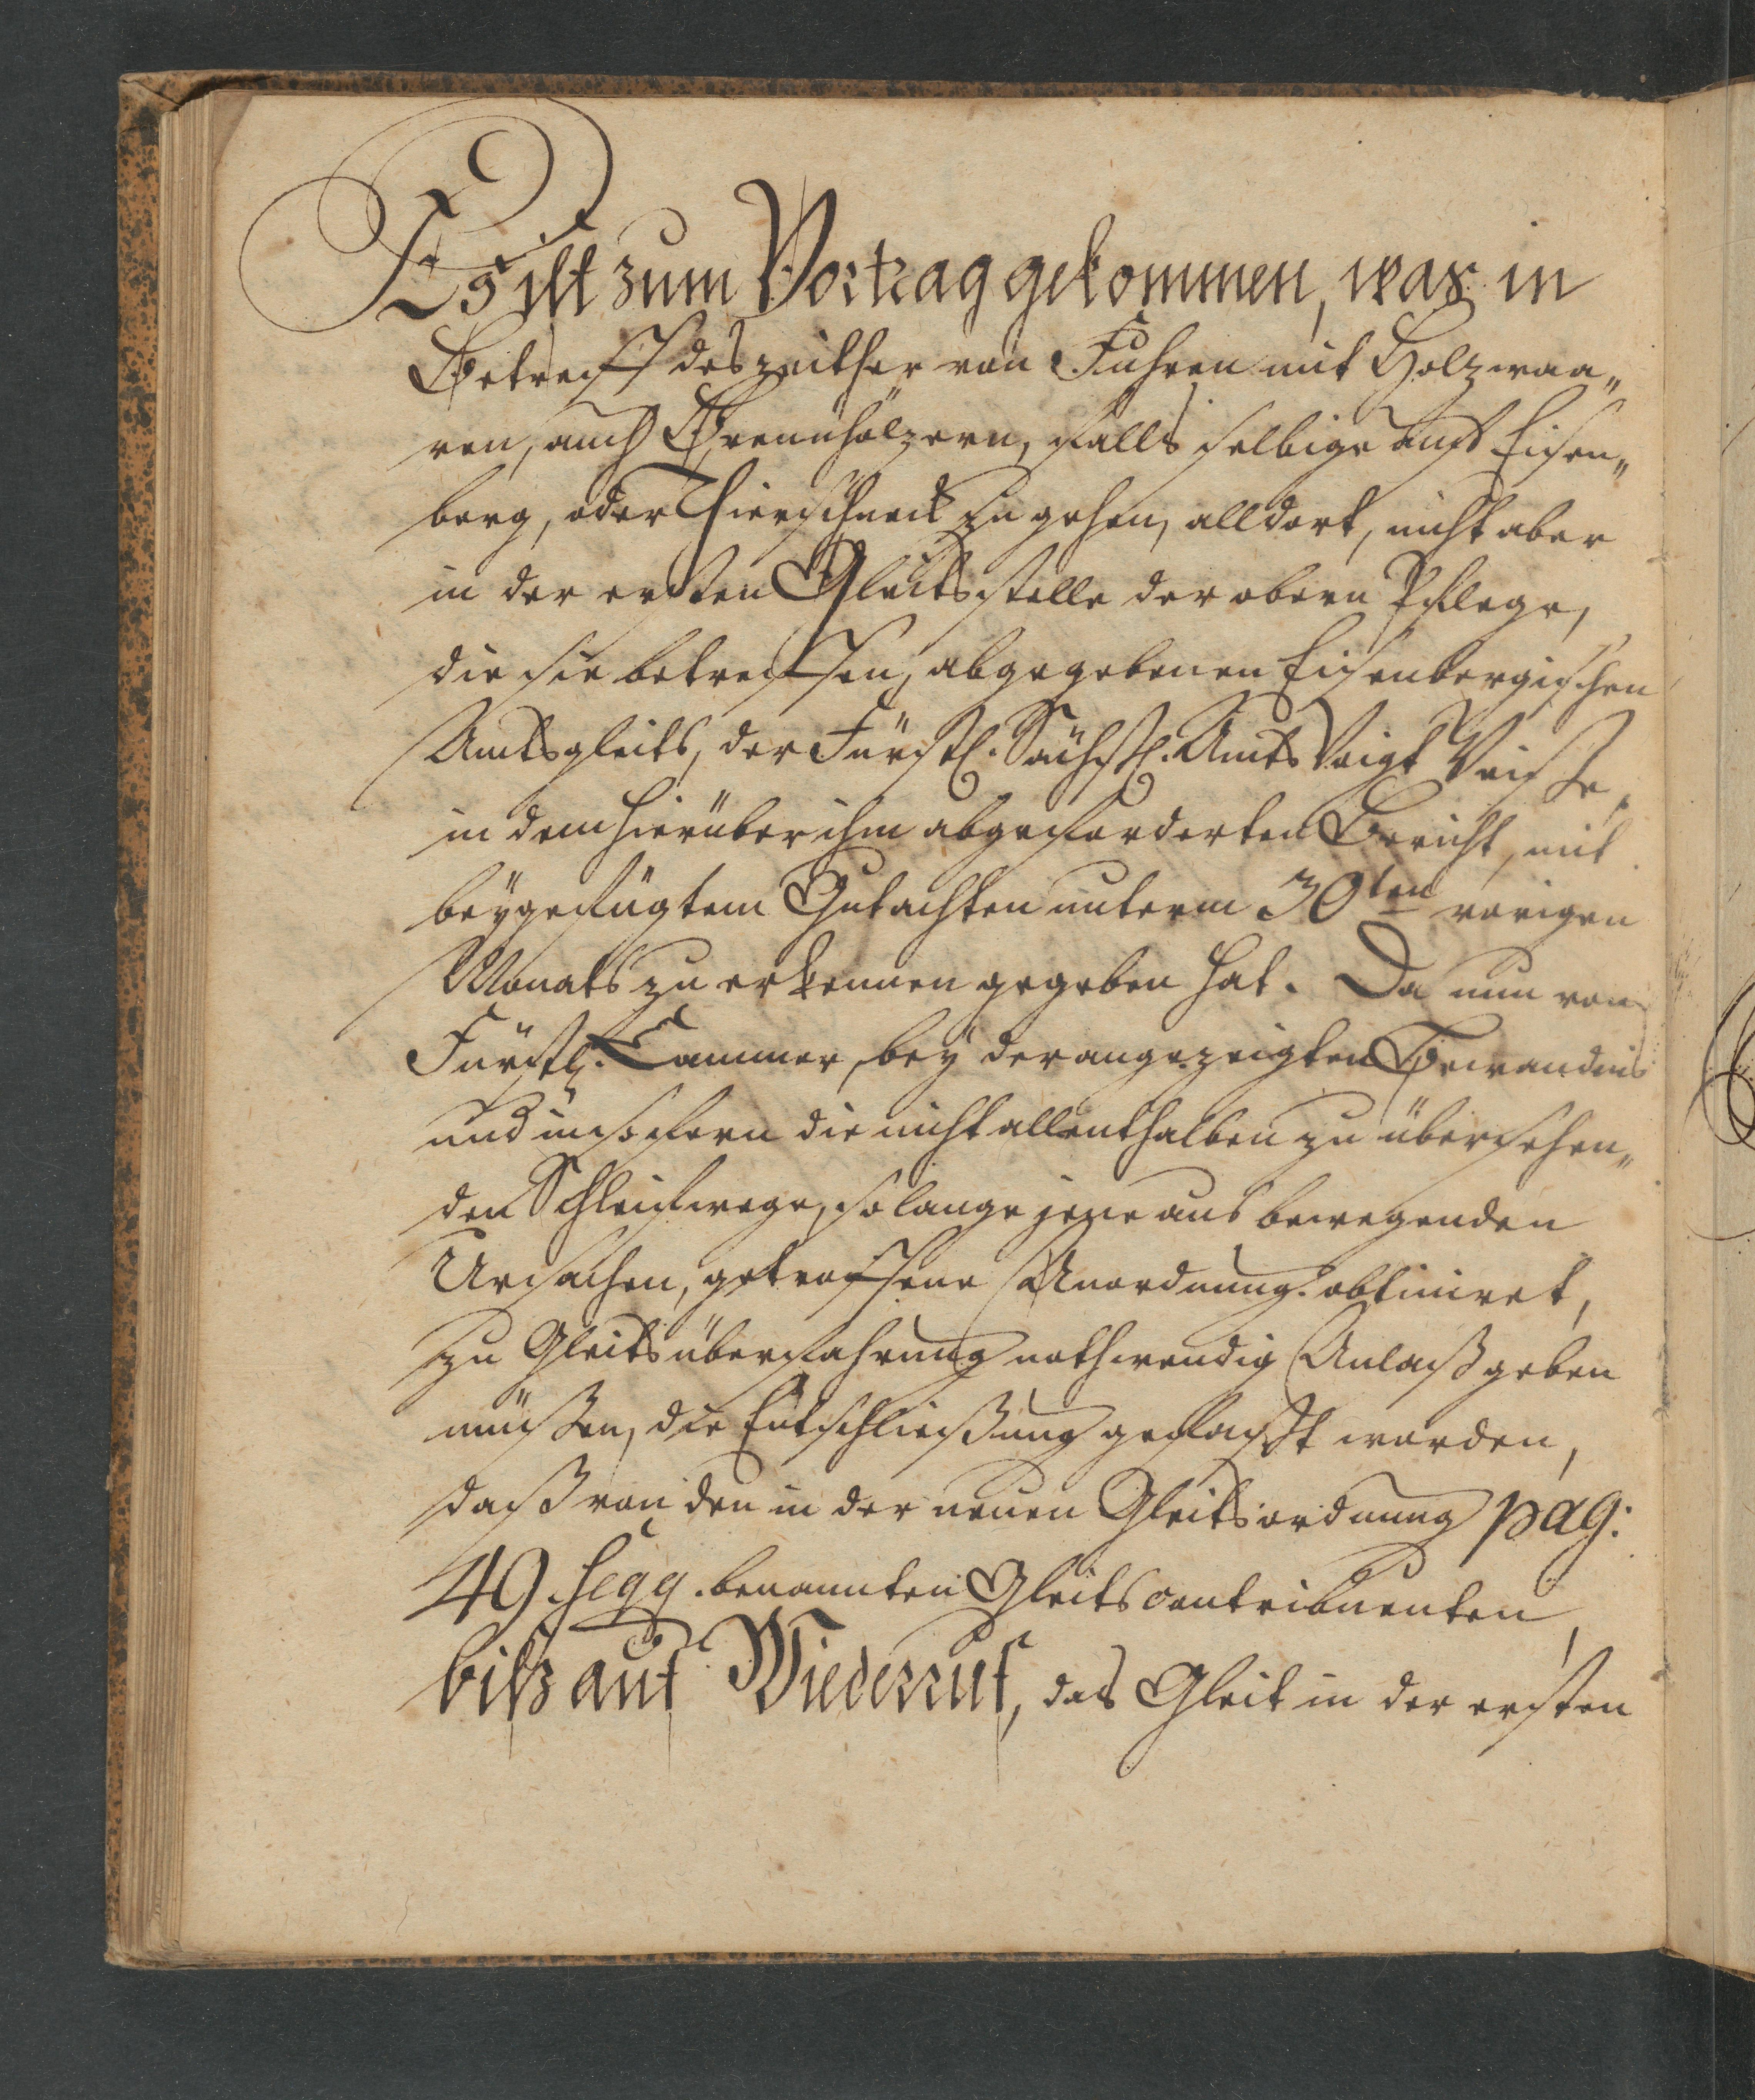 Es ist zum Vortrag gekommen, was in
Betreff des zeither von Fuhren mit Holzwaa„
ren, auch Brennhölzern, falls selbige auf Eisen„
berg, oder Thierschneck zu gehen, alldort, nicht aber
in der ersten Gleitsstelle der obern Pflege,
die sie betreffen, abgegebenen Eisenbergischen
Amtsgleits, der Fürstl. Sächsl. Amts Voigt
in dem hierüber ihm abgeforderten Bericht, mit
beÿgefügtem Gutachten unterm 30ten vorigen
Monats zu erkennen gegeben hat. Da nun von
Fürstl. Cammer, beÿ der angezeigten Bewandnis
und insofern die nicht allenthalben zu übersehen„
den Schleifwege, solange jene aus bewegenden
Ursachen, getroffene Anordnung obtiniret,
zu Gleitsüberfahrung nothwendig Anlaß geben
müßen, die Entschließung gefaßt worden,
daß von den in der neuen Gleitsordnung pag:
49 seqq. benannten Gleitscontribuenten,
biß auf Wiederruf, das Gleit in der ersten